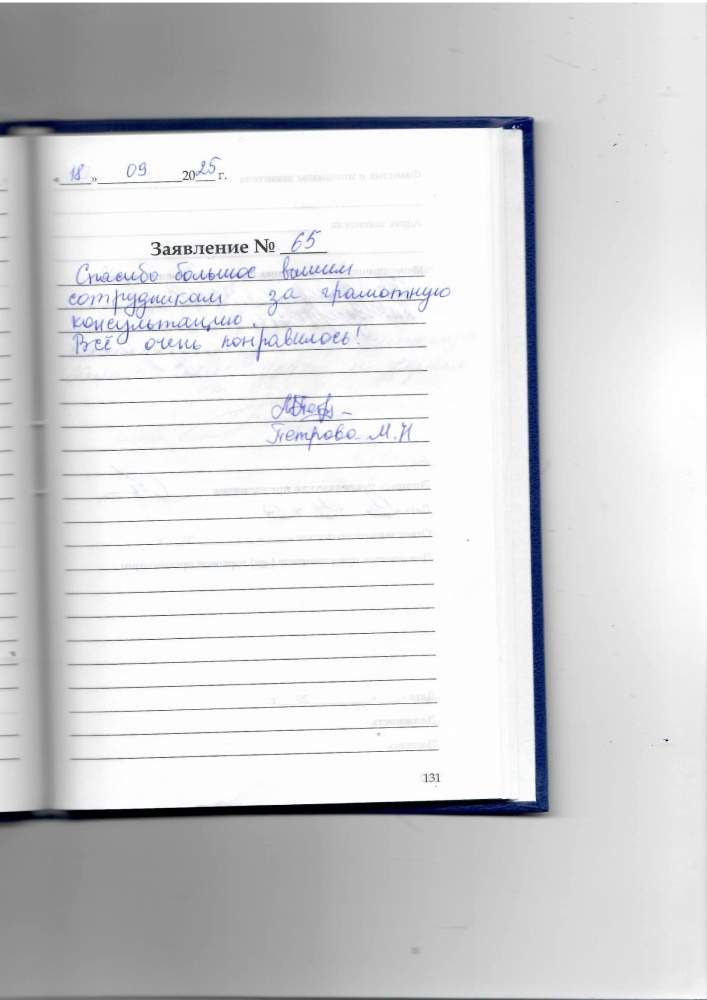 «18» 09 2025 г.
Заявление № 65
Спасибо большое вашим
сотрудникам за грамотную
консультацию.
Всё очень понравилось!
Петрова М.Н
131